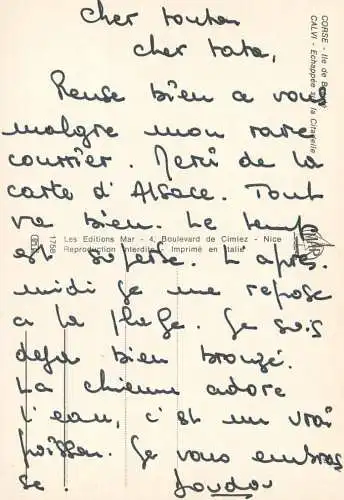 cher tonton
cher tata,
Pense bien a vous
malgre mon rare
courrier. Merci de la
carte d'Alsace. Tout
va bien. Le temps
est superbe. L'apres
midi je me repose
a la plage. Je suis
deja bien bronzé.
La chienne adore
l'eau, c'est un vrai
poisson. Je vous embras
se.
CORSE - Ile de Beauté
CALVI - Echappée sur la Citadelle
1758
Les Editions Mar - 4, Boulevard de Cimiez - Nice
Reproduction Interdite - Imprimé en Italie
MAR